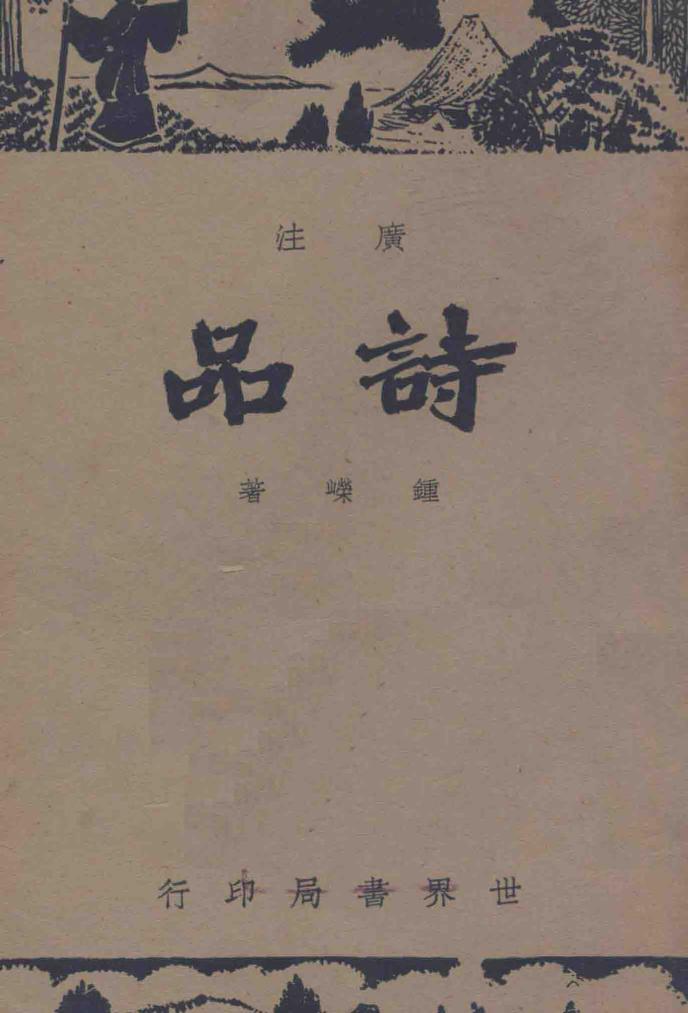 廣注
詩品
鍾嶸著
世界書局印行